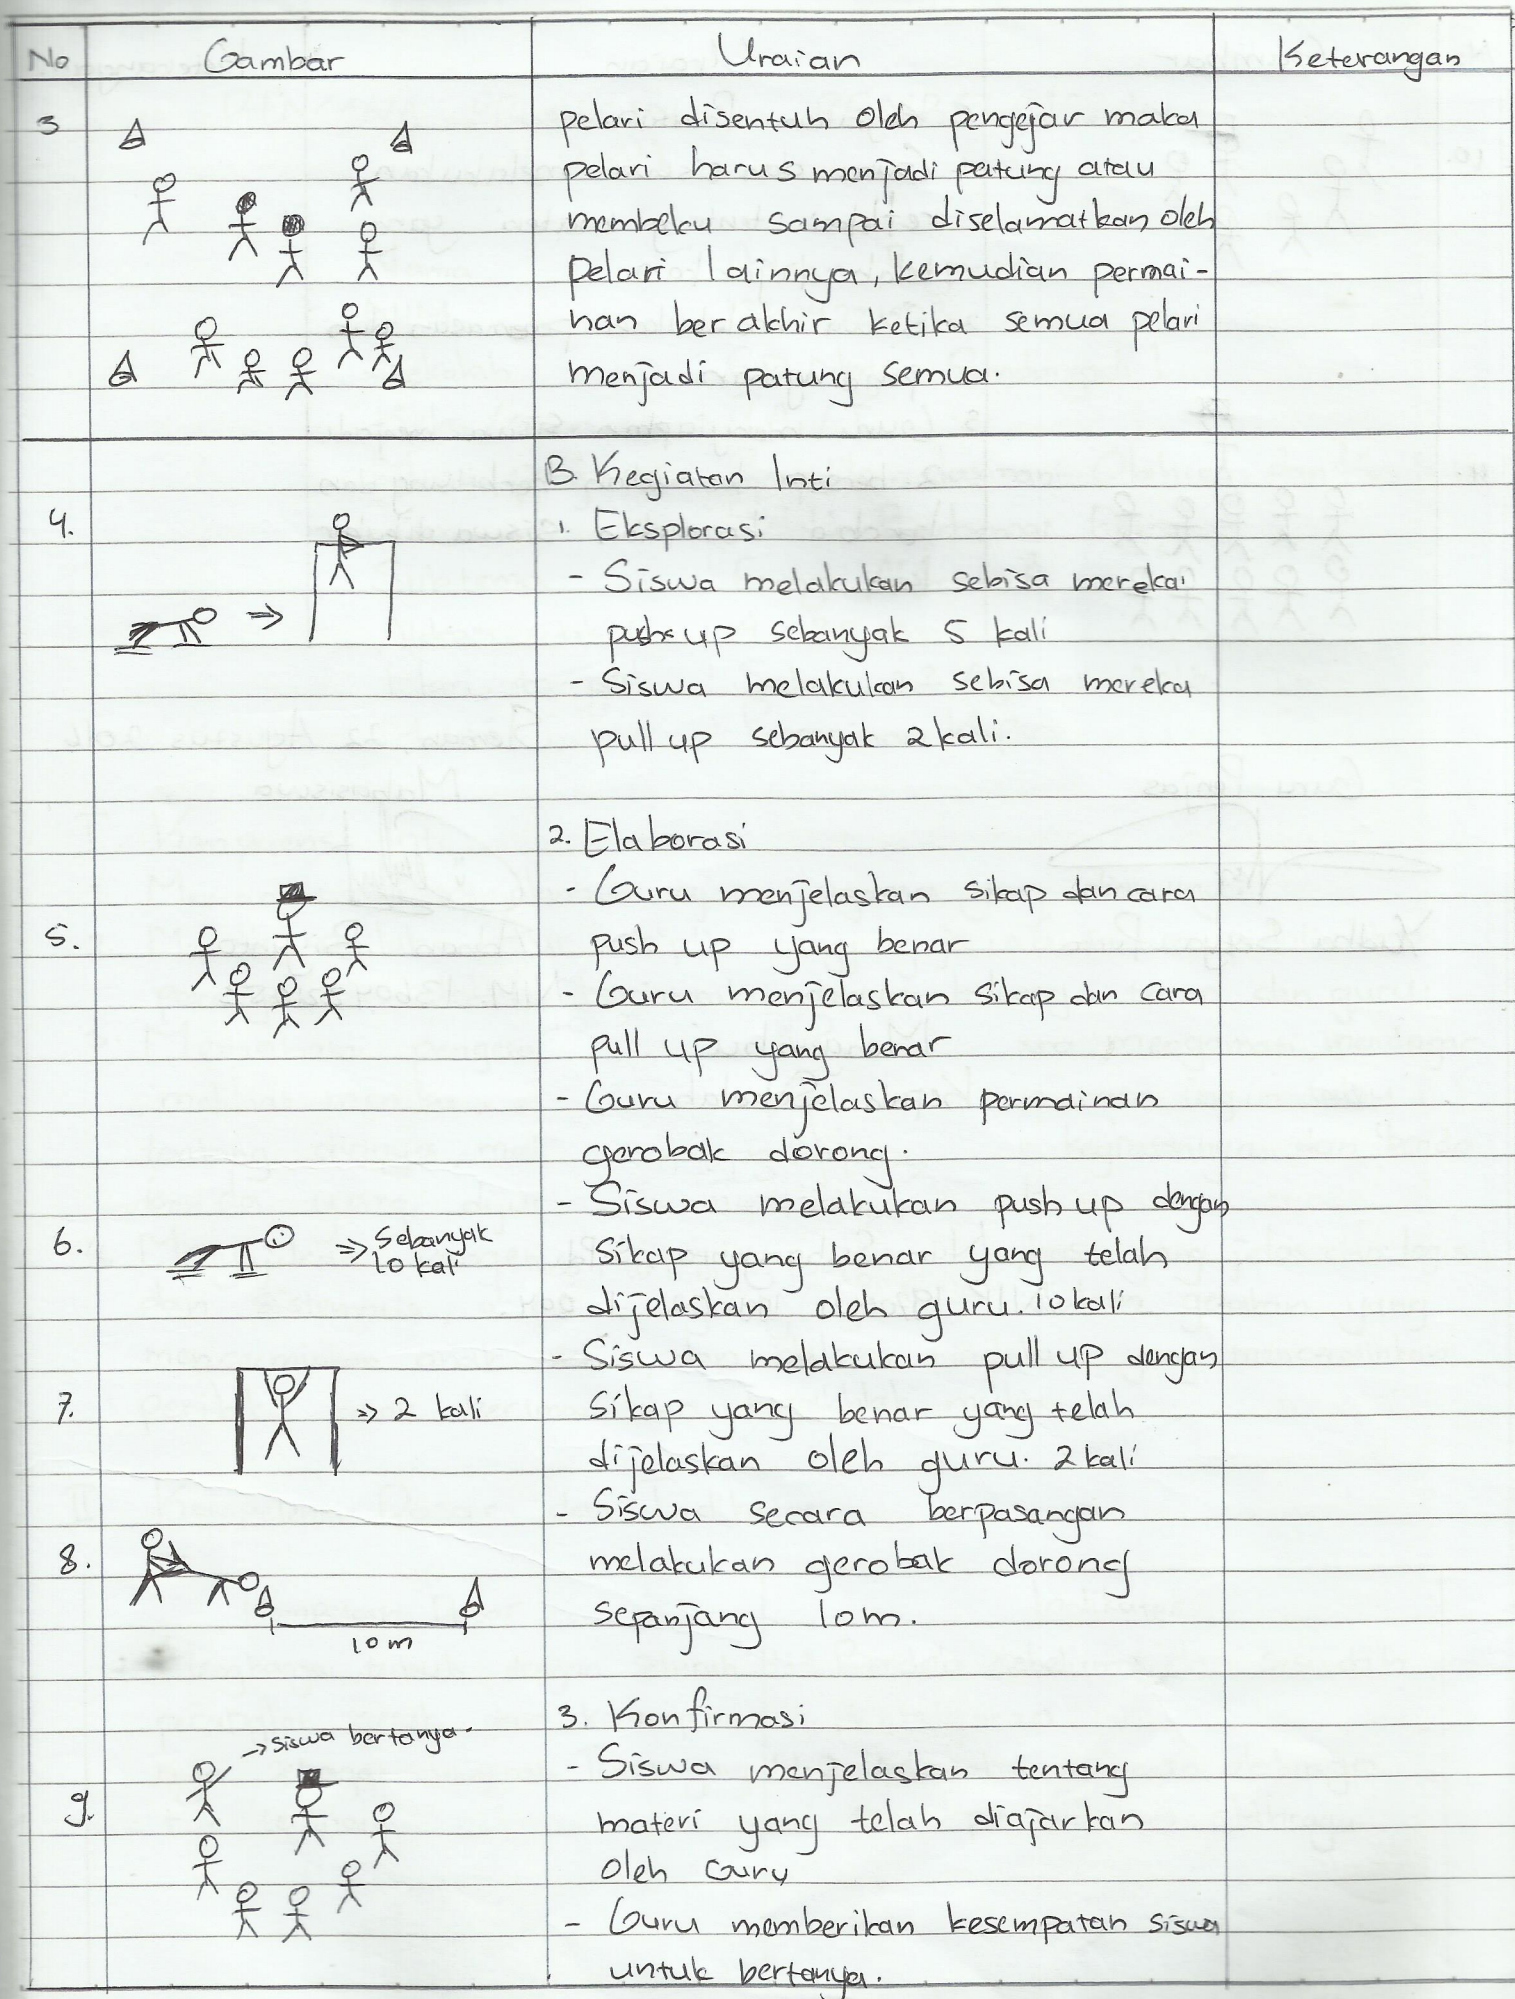 No Gambar Uraian Keterangan
3
pelari disentuh oleh pengejar maka
pelari harus menjadi patung atau
membeku sampai diselamatkan oleh
pelari lainnya, kemudian permai-
nan berakhir ketika semua pelari
menjadi patung semua.
B. Kegiatan Inti
4.
1. Eksplorasi
- Siswa melakukan sebisa mereka
push up sebanyak 5 kali
- Siswa melakukan sebisa mereka
pull up sebanyak 2 kali.
2. Elaborasi
- Guru menjelaskan sikap dan cara
5.
push up yang benar
- Guru menjelaskan sikap dan cara
pull up yang benar
- Guru menjelaskan permainan
gerobak dorong.
- Siswa melakukan push up dengan
6.
=> Sebanyak
10 kali
sikap yang benar yang telah
dijelaskan oleh guru. 10 kali
- Siswa melakukan pull up dengan
7.
=> 2 kali
sikap yang benar yang telah
dijelaskan oleh guru. 2 kali
- Siswa secara berpasangan
8.
melakukan gerobak dorong
sepanjang 10m.
10 m
3. Konfirmasi
-> siswa bertanya.
- Siswa menjelaskan tentang
9.
materi yang telah diajarkan
oleh Guru
- Guru memberikan kesempatan siswa
untuk bertanya.